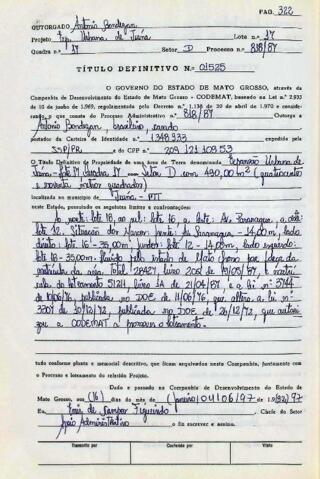 PAG. 322
OUTORGADO Antônio Bondezan
Projeto Exp. Urbana de Juína Lote n.º 17
Quadra n.º 17 Setor D Processo n.º 818/87
TÍTULO DEFINITIVO N.º 01525
O GOVERNO DO ESTADO DE MATO GROSSO, através da
Companhia de Desenvolvimento do Estado de Mato Grosso - CODEMAT, baseado na Lei n.º 2.933
de 10 de junho de 1.969, regulamentada pelo Decreto n.º 1.138 de 20 de abril de 1.970 e considerando,
o que consta do Processo Administrativo n.º 818/87 Outorga a
Antônio Bondezan, brasileiro, casado
portador da Carteira de Identidade n.º 1348933 expedida pela
SSP/PR e do CPF n.º 209 121 109 53
O Título Definitivo de Propriedade de uma área de Terra denominada Expansão Urbana de
Juína - lote 17 quadra 17 Setor D com 490,00 m² (quatrocentos
e noventa metros quadrados)
localizada no município de Juína - MT
neste Estado, possuindo os seguintes limites e confrontações:
Ao norte: lote 18, ao sul: lote 16, a leste: Av.
lote 12. frente: - 14,00m, lado
direito: lote 16 - 35,00m, fundos: lote 12 - 14,00m, lado esquerdo:
lote 18 - 35,00m.
matrícula 28427 livro 206 de
do loteamento 51211 livro 1A de 21/04/87 e a lei n.º 3744
de 10/06/76, publicada no DOE de 11/06/76, que altera a lei n.º
3307 de 20/12/72, publicada no DOE de 26/12/72, que autorizou
a CODEMAT a promover o loteamento.
tudo conforme planta e memorial descritivo, que ficam arquivados nesta Companhia, juntamente com
o Processo e loteamento do referido Projeto.
Dado e passado na Companhia de Desenvolvimento do Estado de
Mato Grosso, aos (16) dias do mês de (Janeiro) 04/06/97 de 1.9
Eu, de Figueiredo Chefe do Setor
Apoio Administrativo o fiz escrever e assino.
Transcrito por Conferido por Visto